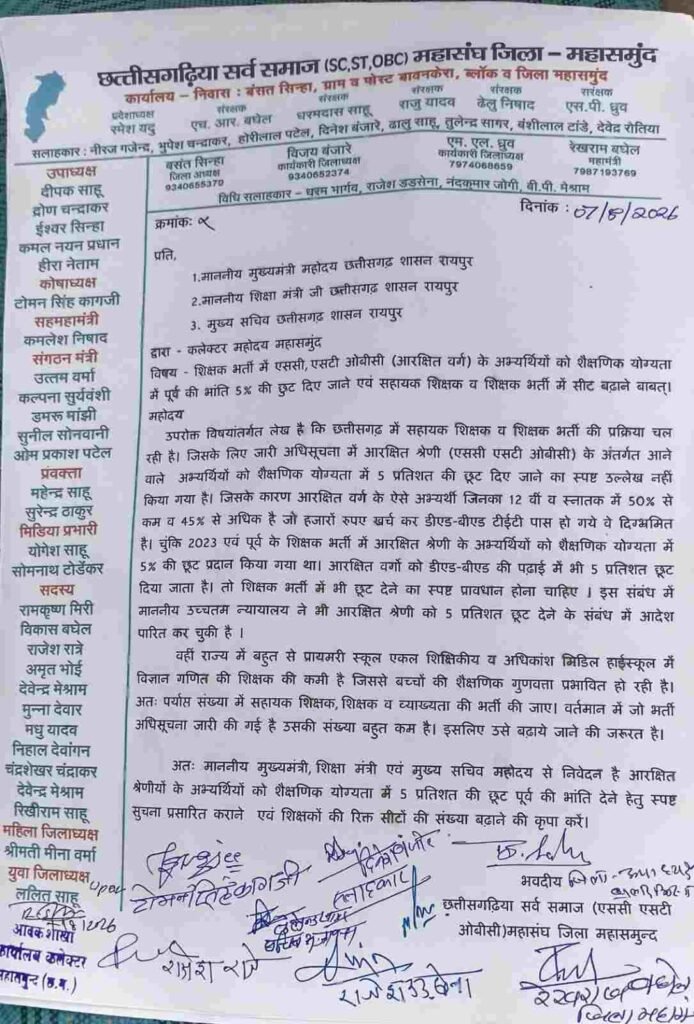 छत्तीसगढ़िया सर्व समाज (SC,ST,OBC) महासंघ जिला – महासमुंद
कार्यालय – निवास : बंसत सिन्हा, ग्राम व पोस्ट बावनकेरा, ब्लॉक व जिला महासमुंद
प्रदेशाध्यक्ष
रमेश यदु
संरक्षक
एच. आर. बघेल
संरक्षक
धरमदास साहू
संरक्षक
राजु यादव
संरक्षक
ढेलु निषाद
संरक्षक
एस.पी. ध्रुव
सलाहकार : नीरज गजेन्द्र, भुपेश चन्द्राकर, होरीलाल पटेल, दिनेश बंजारे, ढालु साहू, तुलेन्द्र सागर, बंशीलाल टांडे, देवेंद्र रौतिया
बसंत सिन्हा
जिला अध्यक्ष
9340655370
विजय बंजारे
कार्यकारी जिलाध्यक्ष
9340652374
एम. एल. ध्रुव
कार्यकारी जिलाध्यक्ष
7974068659
रेखराम बघेल
महामंत्री
7987193769
विधि सलाहकार – धरम भार्गव, राजेश डड़सेना, नंदकुमार जोगी, बी.पी. मेश्राम
उपाध्यक्ष
दीपक साहू
द्रोण चन्द्राकर
ईश्वर सिन्हा
कमल नयन प्रधान
हीरा नेताम
कोषाध्यक्ष
टोमन सिंह कागजी
सहमहामंत्री
कमलेश निषाद
संगठन मंत्री
उत्तम वर्मा
कल्पना सुर्यवंशी
डमरू मांझी
सुनील सोनवानी
ओम प्रकाश पटेल
प्रवक्ता
महेन्द्र साहू
सुरेन्द्र ठाकुर
मिडिया प्रभारी
योगेश साहू
सोमनाथ टोडेंकर
सदस्य
रामकृष्ण मिरी
विकास बघेल
राजेश रात्रे
अमृत भोई
देवेन्द्र मेश्राम
मुन्ना देवार
मधु यादव
निहाल देवांगन
चंद्रशेखर चंद्राकर
देवेन्द्र मेश्राम
रिखीराम साहू
महिला जिलाध्यक्ष
श्रीमती मीना वर्मा
युवा जिलाध्यक्ष
ललित साहू
क्रमांक:
दिनांक : 07/8/2026
प्रति,
1.माननीय मुख्यमंत्री महोदय छत्तीसगढ़ शासन रायपुर
2.माननीय शिक्षा मंत्री जी छत्तीसगढ़ शासन रायपुर
3. मुख्य सचिव छत्तीसगढ़ शासन रायपुर
द्वारा - कलेक्टर महोदय महासमुंद
विषय - शिक्षक भर्ती में एससी,एसटी ओबीसी (आरक्षित वर्ग) के अभ्यर्थियों को शैक्षणिक योग्यता
में पूर्व की भांति 5% की छुट दिए जाने एवं सहायक शिक्षक व शिक्षक भर्ती में सीट बढ़ाने बाबत्।
महोदय
उपरोक्त विषयांतर्गत लेख है कि छत्तीसगढ़ में सहायक शिक्षक व शिक्षक भर्ती की प्रक्रिया चल
रही है। जिसके लिए जारी अधिसूचना में आरक्षित श्रेणी (एससी एसटी ओबीसी) के अंतर्गत आने
वाले अभ्यर्थियों को शैक्षणिक योग्यता में 5 प्रतिशत की छूट दिए जाने का स्पष्ट उल्लेख नहीं
किया गया है। जिसके कारण आरक्षित वर्ग के ऐसे अभ्यर्थी जिनका 12 वीं व स्नातक में 50% से
कम व 45% से अधिक है जो हजारों रुपए खर्च कर डीएड-बीएड टीईटी पास हो गये वे दिग्भ्रमित
है। चुंकि 2023 एवं पूर्व के शिक्षक भर्ती में आरक्षित श्रेणी के अभ्यर्थियों को शैक्षणिक योग्यता में
5% की छूट प्रदान किया गया था। आरक्षित वर्गो को डीएड-बीएड की पढ़ाई में भी 5 प्रतिशत छूट
दिया जाता है। तो शिक्षक भर्ती में भी छूट देने का स्पष्ट प्रावधान होना चाहिए । इस संबंध में
माननीय उच्चतम न्यायालय ने भी आरक्षित श्रेणी को 5 प्रतिशत छूट देने के संबंध में आदेश
पारित कर चुकी है ।
वहीं राज्य में बहुत से प्रायमरी स्कूल एकल शिक्षिकीय व अधिकांश मिडिल हाईस्कूल में
विज्ञान गणित की शिक्षक की कमी है जिससे बच्चों की शैक्षणिक गुणवत्ता प्रभावित हो रही है।
अतः पर्याप्त संख्या में सहायक शिक्षक, शिक्षक व व्याख्यता की भर्ती की जाए। वर्तमान में जो भर्ती
अधिसूचना जारी की गई है उसकी संख्या बहुत कम है। इसलिए उसे बढ़ाये जाने की जरूरत है।
अतः माननीय मुख्यमंत्री,शिक्षा मंत्री एवं मुख्य सचिव महोदय से निवेदन है आरक्षित
श्रेणीयों के अभ्यर्थियों को शैक्षणिक योग्यता में 5 प्रतिशत की छूट पूर्व की भांति देने हेतु स्पष्ट
सुचना प्रसारित कराने एवं शिक्षकों की रिक्त सीटों की संख्या बढ़ाने की कृपा करें।
भवदीय
छत्तीसगढ़िया सर्व समाज (एससी एसटी
ओबीसी)महासंघ जिला महासमुन्द
टोमनसिंह कागजी
सलाहकार
राजेश रात्रे
राजेश डडसेना
आवक शाखा
कार्यालय कलेक्टर
महासमुन्द (छ.ग.)